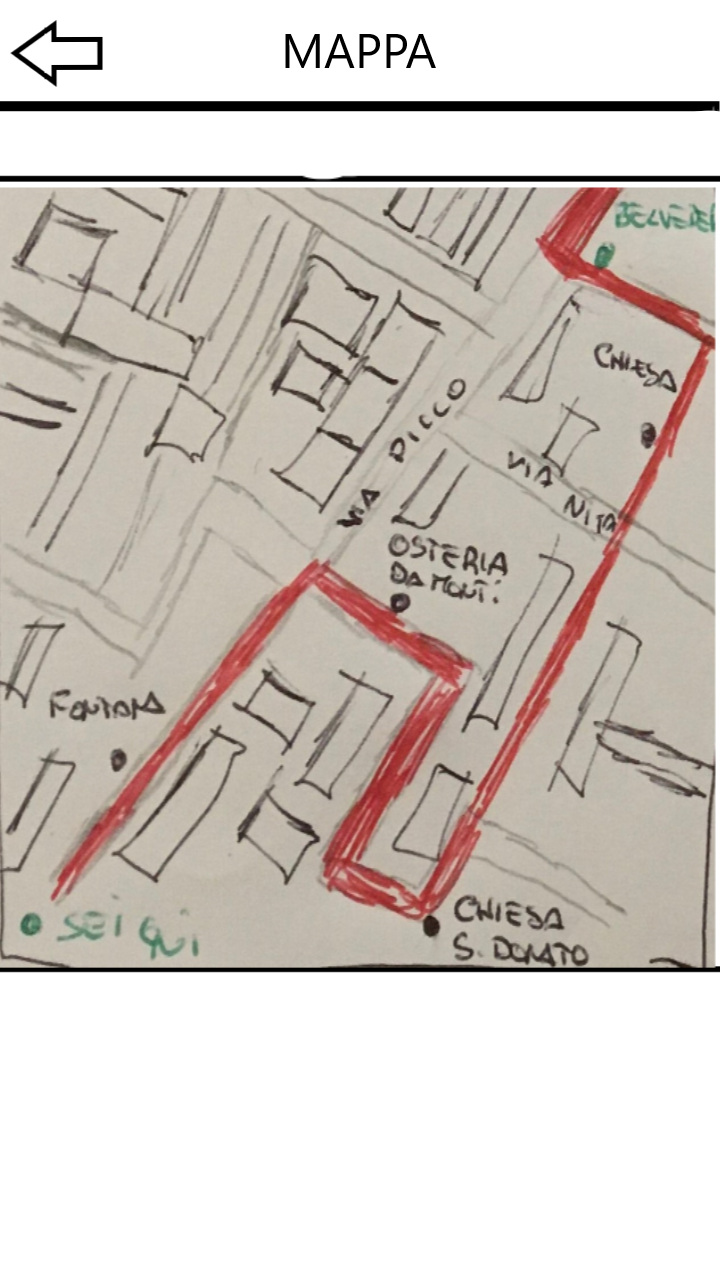 MAPPA
BELVEDE
CHIESA
VIA DICCO
VIA NITA
OSTERIA
DA MONTI
FONTANA
SEI QUI
CHIESA
S. DONATO